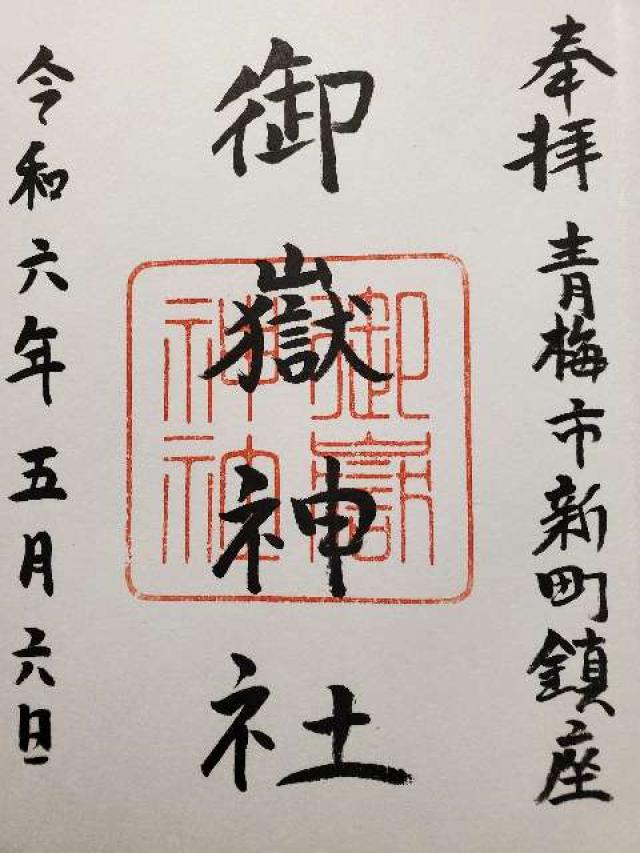 奉拝 青梅市新町鎮座
御嶽神社
御嶽
神社
令和六年五月六日